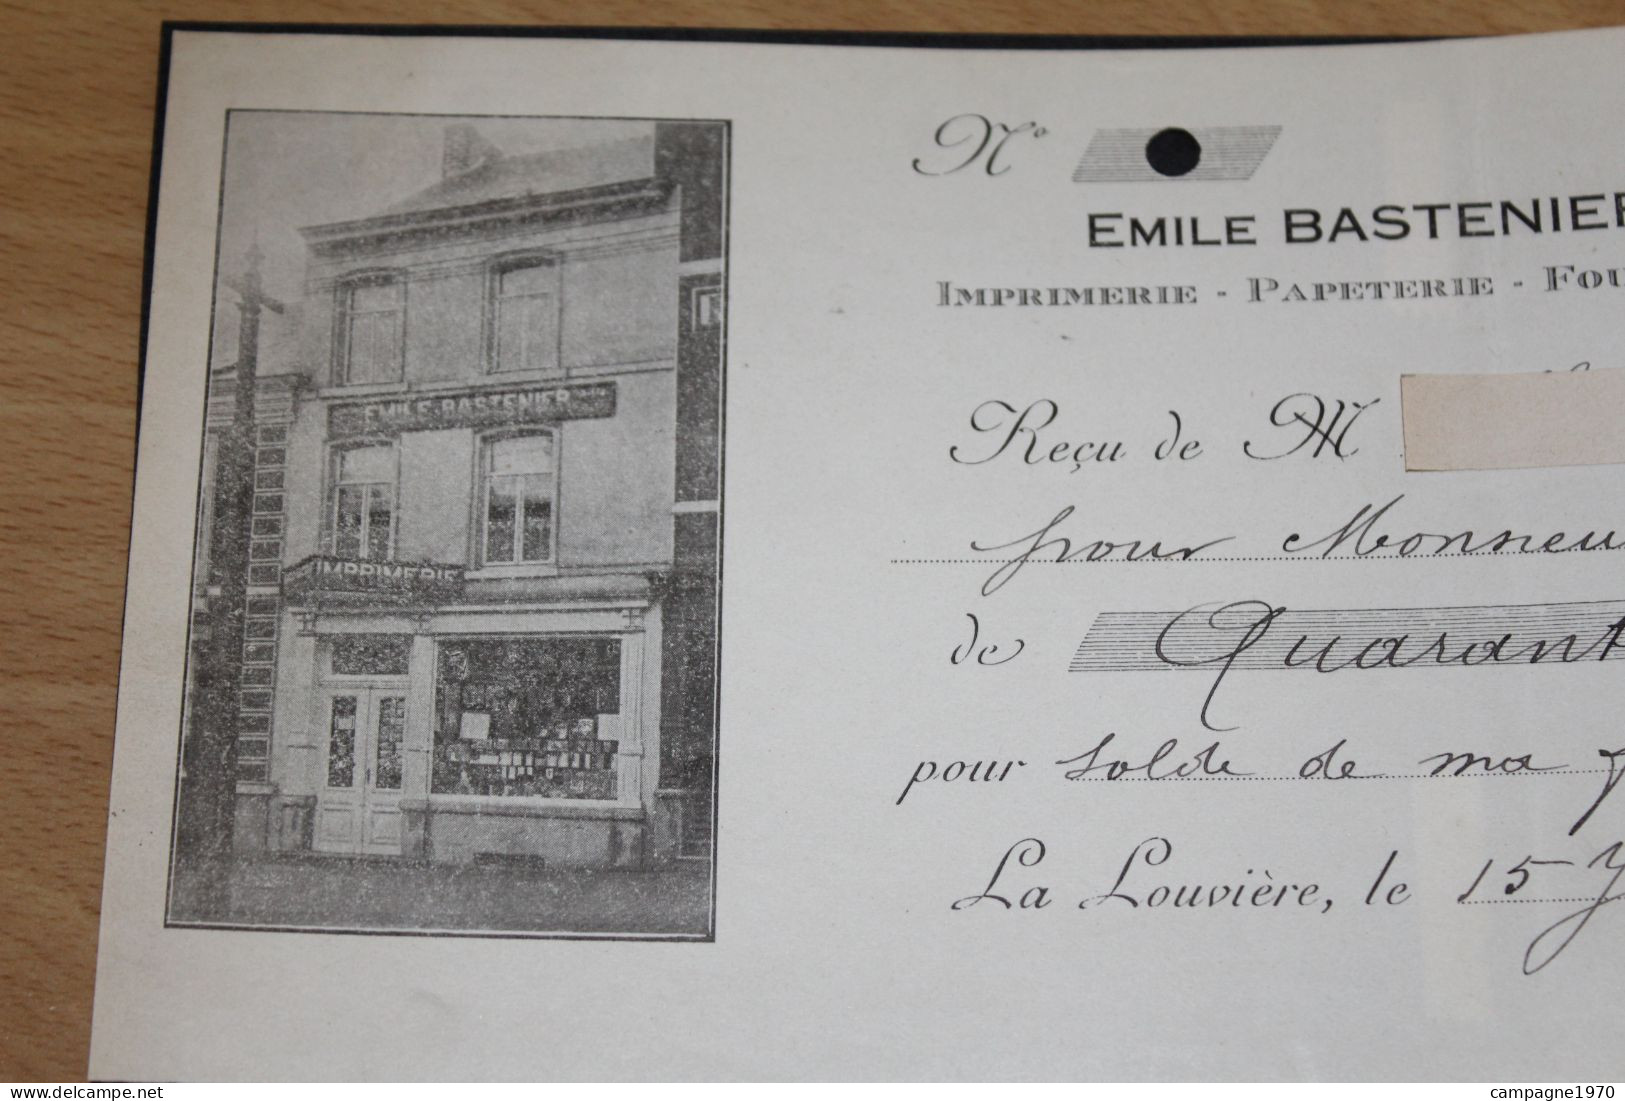 EMILE BASTENIER
IMPRIMERIE
N°
EMILE BASTENIER
IMPRIMERIE - PAPETERIE - FOU
Reçu de M
pour Monsieu
de Quarant
pour solde de ma f
La Louvière, le 15 J
campagne1970